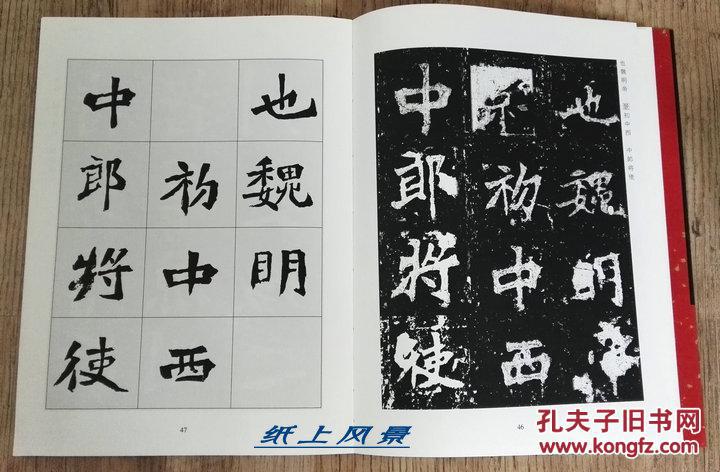 也魏明帝 初中西 中郎將使
也魏明帝
初中西
中郎將使
46
也魏明
初中西
中郎將使
47
纸上风景
孔夫子旧书网
www.kongfz.com